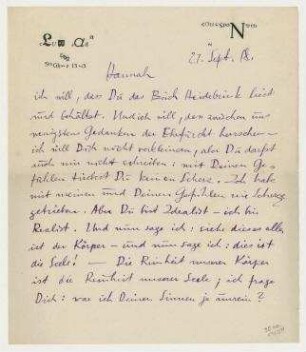 27. Sept. 18.
Hannah
ich will, dass Du das Buch Heidebrink liest
und behältst. Und ich will, dass zwischen uns
wenigstens Gedanken der Ehrfurcht herrschen –
ich will Dich nicht verkleinern, aber Du darfst
auch mir nicht schreiben: mit Deinen Ge-
fühlen triebest Du keinen Scherz. Ich habe
mit meinen und Deinen Gefühlen nie Scherz
getrieben. Aber Du bist Idealist – ich bin
Realist. Und nun sage ich: siehe dieses alles
ist der Körper – und nun sage ich: dies ist
die Seele! — Die Reinheit unserer Körper
ist die Reinheit unserer Seele; ich frage
Dich: war ich Deinen Sinnen je unrein?